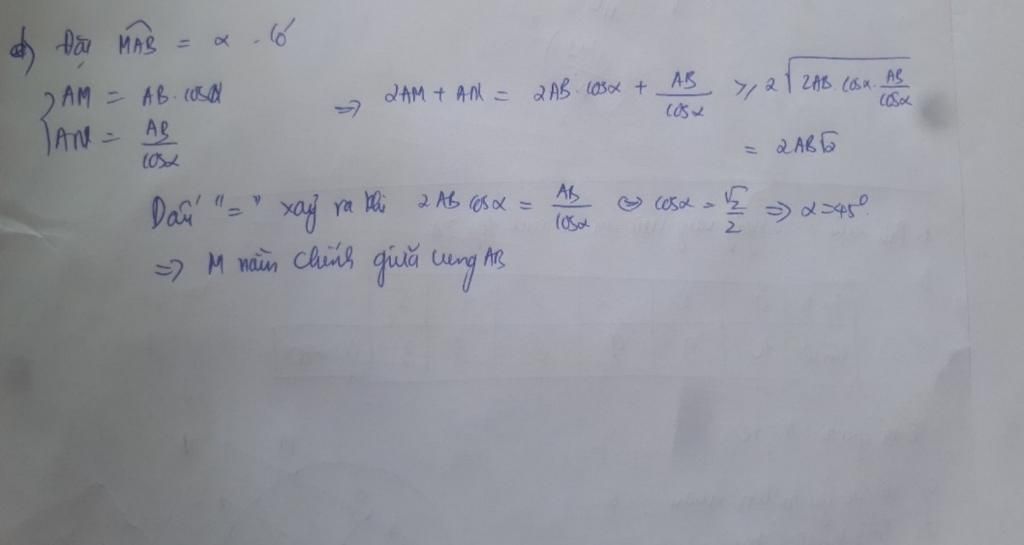 d) Đặt MAB = α . Có
AM = AB . cosα ⇒ 2AM + AN = 2AB . cosα + AB/cosα ≥ 2√(2AB . cosα . AB/cosα)
AN = AB/cosα = 2AB√2
Dấu "=" xảy ra khi 2AB cosα = AB/cosα ⇔ cosα = √2/2 ⇒ α = 45°.
⇒ M nằm chính giữa cung AB